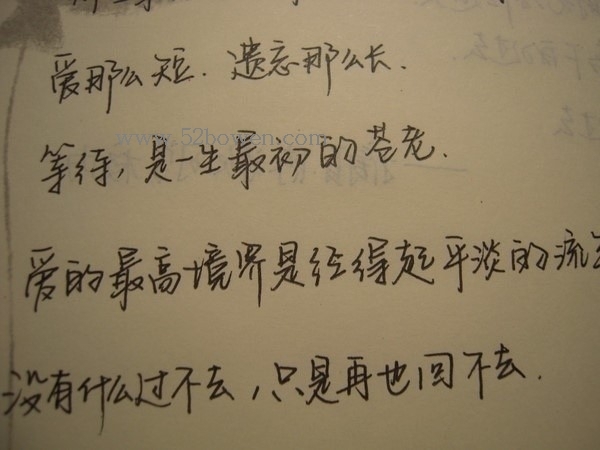 爱那么短. 遗忘那么长.
www.52bowen.com
等待, 是一生最初的苍老.
爱的最高境界是经得起平淡的流
没有什么过不去, 只是再也回不去.